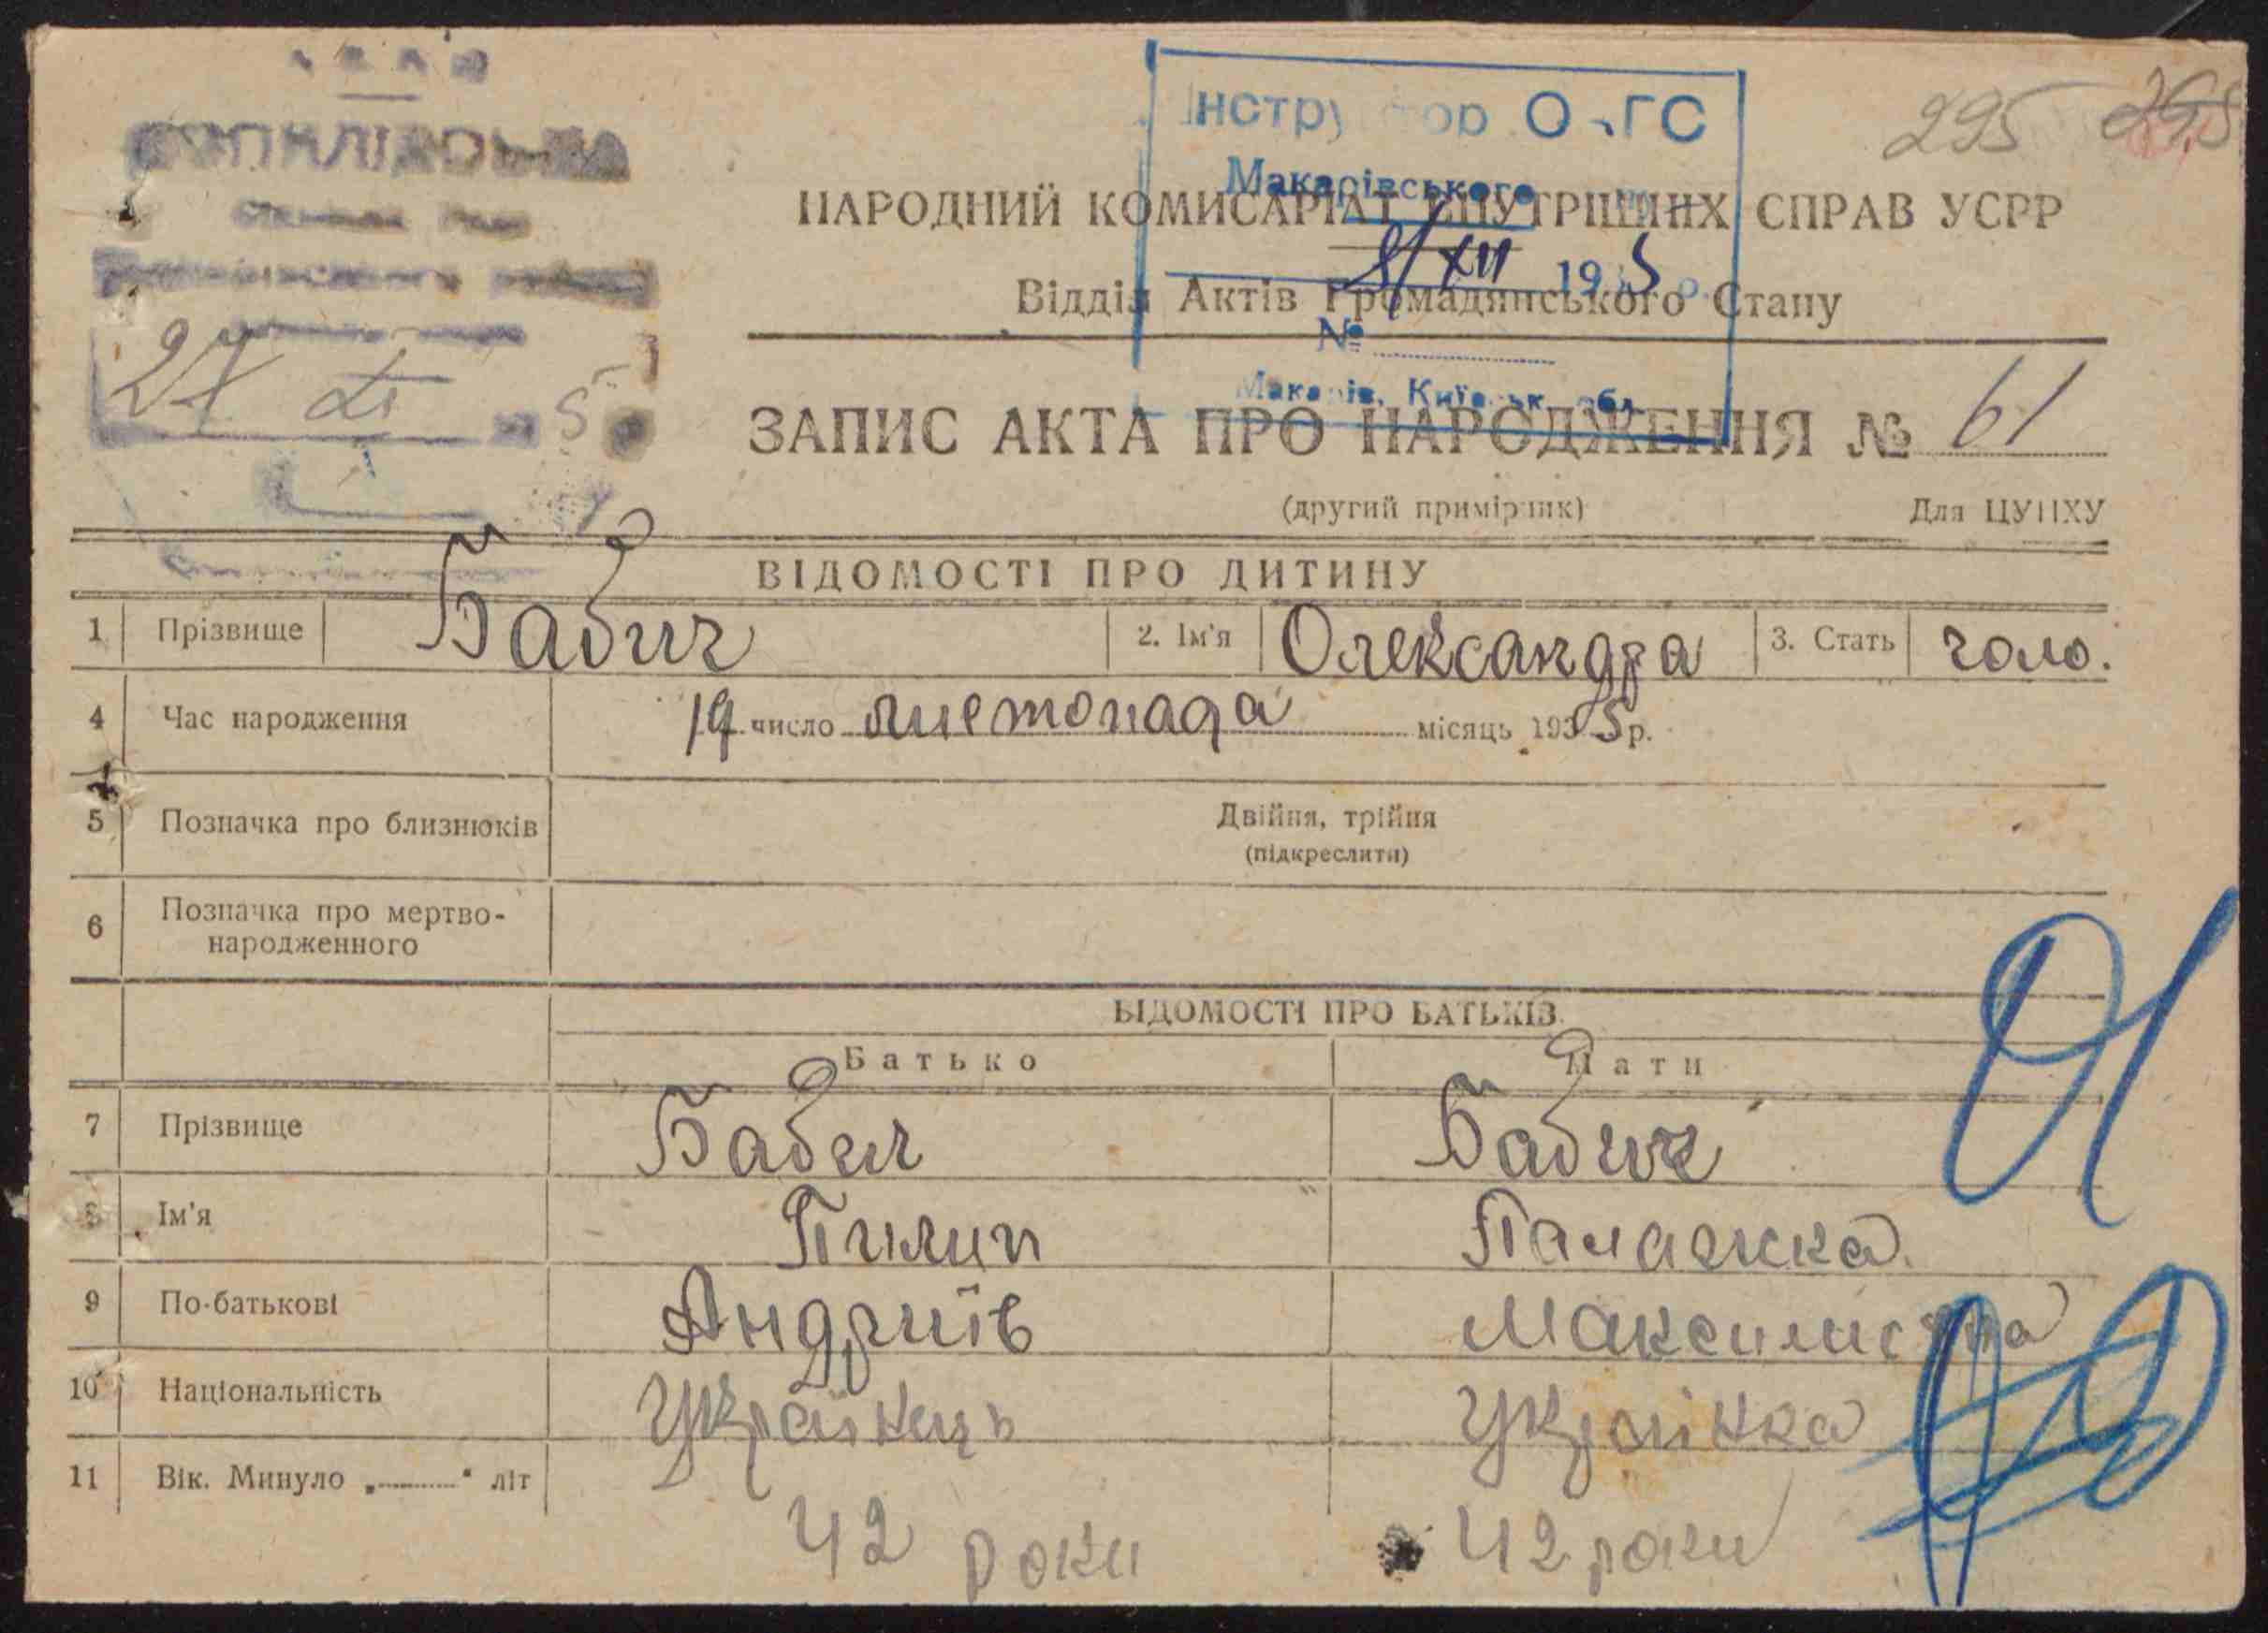 УСРР
КОПИЛІВСЬКА
Сільська Рада
27 XI 5
Інструктор ОАГС
Макарівського
8/XII 1935 р.
№
Макарів, Київськ. обл.
295 295
НАРОДНИЙ КОМИСАРІАТ ВНУТРІШНІХ СПРАВ УСРР
Відділ Актів Громадянського Стану
ЗАПИС АКТА ПРО НАРОДЖЕННЯ № 61
(другий примірник) Для ЦУНХУ
ВІДОМОСТІ ПРО ДИТИНУ
1 Прізвище Бабич 2. Ім'я Олександра 3. Стать чоло.
4 Час народження 19 число листопада місяць 1935 р.
5 Позначка про близнюків Двійня, трійня
(підкреслити)
6 Позначка про мертво-
народженного
ВІДОМОСТІ ПРО БАТЬКІВ
Батько Мати
7 Прізвище Бабич Бабич
8 Ім'я Пилип Палажка
9 По-батькові Андриїв
10 Національність Українець Украінка
11 Вік. Минуло „ “ літ
42 роки 42 роки